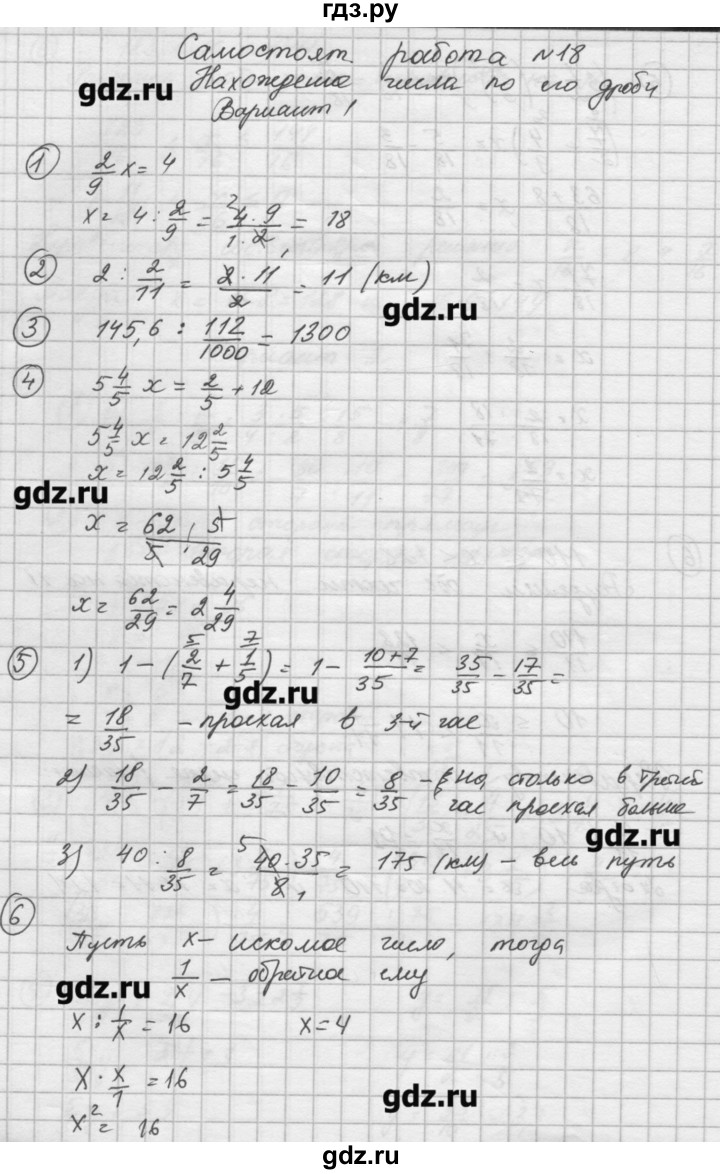 гдз.ру
Самостоят работа №18
Нахождение числа по его дроби
Вариант 1
gdz.ru
① 2/9 x = 4
x = 4 : 2/9 = 4·9/1·2 = 18
② 2 : 2/11 = 2·11/2 = 11 (км)
gdz.ru
③ 145,6 : 112/1000 = 1300
④ 5 4/5 x = 2/5 + 12
5 4/5 x = 12 2/5
x = 12 2/5 : 5 4/5
gdz.ru
x = 62·5/5·29
x = 62/29 = 2 4/29
⑤ 1) 1 - (2/7 + 1/5) = 1 - 10+7/35 = 35/35 - 17/35 =
gdz.ru
= 18/35 - проехал в 3-й час
2) 18/35 - 2/7 = 18/35 - 10/35 = 8/35 - на столько в третий
час проехал больше
gdz.ru
3) 40 : 8/35 = 40·35/8 = 175 (км) - весь путь
⑥
Пусть x - искомое число, тогда
1/x - обратное ему
gdz.ru
x : 1/x = 16 x = 4
x · x/1 = 16
gdz.ru
x² = 16
gdz.ru